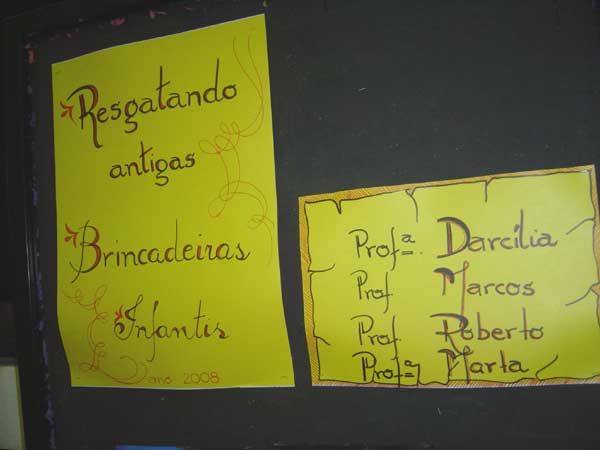 Resgatando
antigas
Brincadeiras
Infantis
ano 2008
Profª. Darcília
Prof. Marcos
Prof. Roberto
Profª Marta